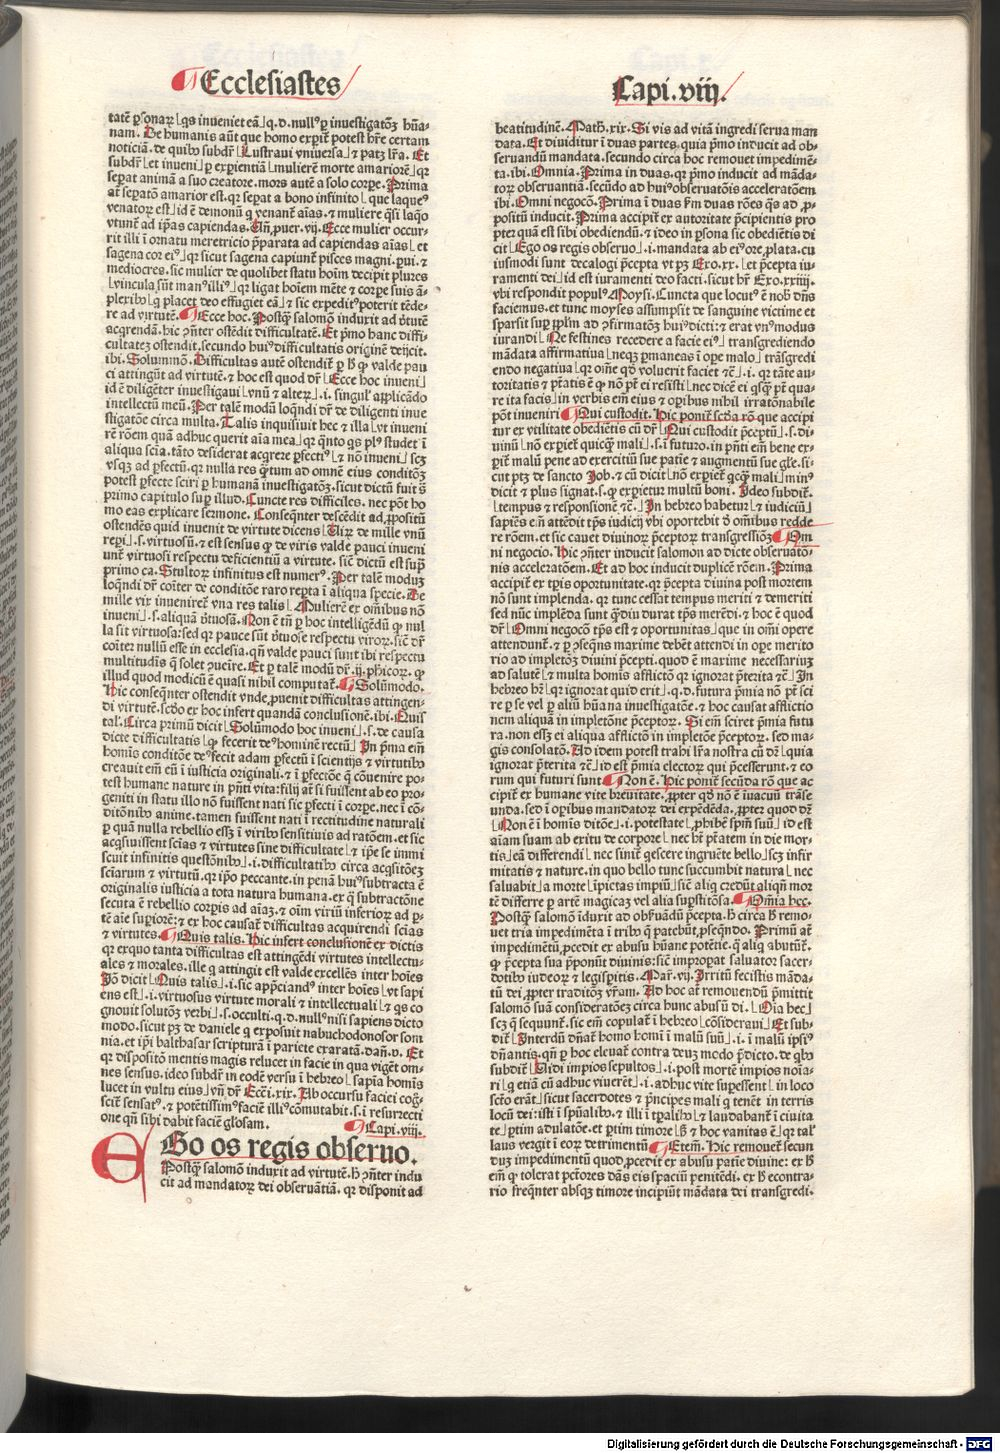 Ecclesiastes
Capi.viij.
tatē ꝑsonaꝝ qs inueniet eā q.d. nullꝰ ꝑ inuestigatōꝫ hūa-
nam. De humanis aūt que homo exꝑiri potest hr̄e certam
noticiā. de quibꝰ subdr̄ Lustraui vniuersa et patꝫ lr̄a. Et
subdr̄ et inueni ꝑ exꝑientiā mulierē morte amariorē qꝛ
seꝑat animā a suo creatore. mors autē a solo corꝑe. Prima
at seꝑatō amarior est. qꝛ seꝑat a bono infinito que laqueꝰ
venatoꝝ est id ē demonū q venant̄ aīas. et muliere q̄si laq̄o
vtunt̄ ad ip̄as capiendas. Uñ ꝓuer. vij. Ecce mulier occur-
rit illi ī ornatu meretricio p̄parata ad capiendas aīas et
sagena cor eiꝰ qꝛ sicut sagena capiunt̄ pisces magni. ꝑui. et
mediocres. sic mulier de quolibet statu hoīm decipit plures
vincula sūt manꝰ illiꝰ qꝛ ligat hoīem mēte et corꝑe suis ā-
plexibꝰ q placet deo effugiet eā et sic expeditꝰ poterit tēde-
re ad virtutē. Ecce hoc. Postqꝫ salomō induxit ad v̄tutē
acq̄rendā. hic ꝯn̄ter ostēdit difficultatē. Et p̄mo hanc diffi-
cultatē ostendit. secundo huiꝰ difficultatis originē deijcit.
ibi. Solummō. Difficultas autē ostendit̄ ꝑ h̄ ꝙ valde pau
ci attingūt ad virtutē. et hoc est quod dr̄ Ecce hoc inueni
id ē diligēter inuestigaui vnū et alteꝝ .i. singulꝭ applicādo
intellectū meū. Per talē modū loq̄ndi dr̄ de diligenti inue
stigatōe circa multa. Talis inquisiuit hec et illa vt inueni
rē rōem quā adhuc querit aīa mea qꝛ q̄nto qs plꝰ studet ī
aliqua scīa. tāto desiderat acq̄rere ꝑfectiꝰ et nō inueni scꝫ
vsqꝫ ad ꝑfectū. qꝛ nulla res q̄tum ad omnē eius conditōꝫ
potest ꝑfecte sciri ꝑ humanā inuestigatōꝫ. sicut dictū fuit ꝭ
primo capitulo suꝑ illud. Cuncte res difficiles. nec pōt ho
mo eas explicare sermone. Conseq̄nter descēdit ad ꝓpositū
ostendēs quid inuenit de virtute dicens Uirꝫ de mille vnū
reꝑi .s. virtuosū. et est sensus ꝙ de viris valde pauci inueni
unt̄ virtuosi respectu deficientiū a virtute. sic̄ dictū est suꝑ
primo ca. Stultoꝝ infinitus est numerꝰ. Per talē moduꝫ
loq̄ndi dr̄ cōiter de conditōe raro reꝑta ī aliqua specie. De
mille vix inueniret̄ vna res talis Mulierē ex om̄ibus nō
inueni .s. aliquā v̄tuosā. Non ē tn̄ ꝑ hoc intelligēdū ꝙ nul
la sit virtuosa: sed qꝛ pauce sūt v̄tuose respectu viroꝝ. sic̄ dr̄
cōiter nullū esse in ecclesia. qn̄ valde pauci sunt ibi respectu
multitudīs q̄ solet ꝯuēire. Et ꝑ talē modū dr̄ .ij. phicoꝝ. ꝙ
illud quod modicū ē quasi nihil computat̄. Solūmodo.
Hic conseq̄nter ostendit vnde ꝓuenit difficultas attingen-
di virtutē. scd̄o ex hoc infert quandā conclusionē. ibi. Quis
tal. Circa primū dicit Solūmodo hoc inueni .s. de causa
dicte difficultatis ꝙ fecerit deꝰ hominē rectū In p̄ma em̄
homīs conditōe deꝰ fecit adam ꝑfectū ī scientijs et virtutibꝰ
creauit em̄ eū ī iusticia originali. et ī ꝑfectiōe q̄ cōuenire po-
test humane nature in pn̄ti vita: filij at̄ si fuissent ab eo pro-
geniti in statu illo nō fuissent nati sic ꝑfecti ī corꝑe. nec ī cō-
ditōnibꝰ anime. tamen fuissent nati ī rectitudine naturali
ꝑ quā nulla rebellio essꝫ ī viribꝰ sensitiuis ad ratōem. et sic
acquiuissent scīas et virtutes sine difficultate et ip̄e se immi
scuit infinitis questōnibꝰ .i. difficultatibꝰ circa acq̄sitōeꝫ
sciarum et virtutū. qꝛ ip̄o peccante. in penā huiꝰ subtracta ē
originalis iusticia a tota natura humana. ex q̄ subtractōne
secuta ē rebellio corꝑis ad aīaꝫ. et oīm viriū inferioꝝ ad ꝑ-
tē aīe suꝑiorē: et ex hoc causat̄ difficultas acquirendi scīas
et virtutes. Quis talis. Hic infert conclusionē ex dictis
qꝛ exquo tanta difficultas est attingēdi virtutes intellectu-
ales et morales. ille q̄ attingit est valde excellēs inter hoīes
Jō dicit Quis talis .i. sic app̄ciandꝰ inter hoīes vt sapi
ens est .i. virtuosus virtute morali et intellectuali et qs co
gnouit solutōꝫ verbi .s. occulti. q.d. nullꝰ nisi sapiens dicto
modo. sicut pꝫ de daniele q exposuit nabuchodonosor som
nia. et ip̄i balthasar scripturā ī pariete exaratā. dañ. v. Et
qꝛ dispositō mentis magis relucet in facie in qua vigēt om-
nes sensus. ideo subdr̄ in eodē versu ī hebreo sapīa homīs
lucet in vultu eius vn̄ dr̄ Ecc̄i.xix. Ab occursu faciei cog̃-
scit̄ sensatꝰ. et potētissimꝰ faciē illiꝰ cōmutabit. s. ī resurrecti
one qn̄ sibi dabit faciē gl̓osam. Capi. viij.
EGo os regis obseruo.
Postqꝫ salomō induxit ad virtutē. h̄ ꝯn̄ter indu
cit ad mandatoꝝ dei obseruātiā. qꝛ disponit ad
beatitudinē. Math. xix. Si vis ad vitā ingredi serua man
data. Et diuiditur ī duas partes. quia p̄mo inducit ad ob-
seruandū mandata. secundo circa hoc remouet impedimē-
ta. ibi. Omnia. Prima in duas. qꝛ p̄mo inducit ad māda-
toꝝ obseruantiā. secūdo ad huiꝰ obseruatōis acceleratōem
ibi. Omni negocō. Prima ī duas fm̄ duas rōes qs ad ꝓ-
positū inducit. Prima accipit̄ ex autoritate p̄cipientis pro
pter quā est sibi obediendū. et ideo in ꝑsona sic obediētis di
cit Ego os regis obseruo .i. mandata ab eiꝰ ore ꝓlata. cu
iusmodi sunt decalogi p̄cepta vt pꝫ Exo. xx. et p̄cepta iu-
ramenti dei id est iuramenti deo facti. sicut hr̄ Exo. xxiiij.
vbi respondit populꝰ Moysi. Cuncta que locutꝰ ē nob̄ dn̄s
faciemus. et tunc moyses assumpsit de sanguine victime et
sparsit suꝑ pplm̄ ad ꝯfirmatōꝫ huiꝰ dicti: et erat vnꝰ modus
iurandi Ne festines recedere a facie eiꝰ transgrediendo
mādata affirmatiua neqꝫ ꝑmaneas ī oꝑe malo trāsgredi
endo negatiua qꝛ oīe qd̄ voluerit faciet tē .i. qꝛ tāte au-
toritatis et ptātis ē ꝙ nō pt̄ ei resisti nec dicē ei qsqꝫ pt̄ qua-
re ita facis in verbis em̄ eius et oꝑibus nihil irratōnabile
pōt inueniri Qui custodit. Hic ponit̄ scd̄a rō que accipi
tur ex vtilitate obediētis cū dr̄ Qui custodit p̄ceptū .s. di-
uinū nō exꝑiet̄ quicqꝫ mali .s. ī futuro. in pn̄ti em̄ bene ex-
ꝑit̄ malū pene ad exercitiū sue patiē et augmentū sue gl̓e. si-
cut ptꝫ de sancto Job. et cū dicit nō exꝑiet̄ qcqꝫ mali minꝰ
dicit et plus signat̄. s. ꝙ exꝑietur multū boni. Ideo subdit̄.
tempus et responsionē tē. In hebreo habetur et iudiciū
sapiēs em̄ attēdit tꝑs iudicij vbi oportebit d̄ om̄ibus redde
re rōem. et sic cauet diuinoꝝ p̄ceptoꝝ transgressiōꝫ Om
ni negocio. Hic ꝯn̄ter inducit salomon ad dicte obseruatō-
nis acceleratōem. Et ad hoc inducit duplicē rōem. Prima
accipit̄ ex tꝑis oportunitate. qꝛ p̄cepta diuina post mortem
nō sunt implenda. qꝛ tunc cessat tempus meriti et demeriti
sed nūc implēda sunt q̄diu durat tꝑs merēdi. et hoc ē quod
dr̄ Omni negocō tꝑs est et oportunitas que in om̄i opere
attendunt̄. et ꝑ ꝯseq̄ns maxime debēt attendi in oꝑe merito
rio ad impletōꝫ diuini p̄cepti. quod ē maxime necessariuꝫ
ad salutē et multa homīs afflictō qꝛ ignorat p̄terita tē In
hebreo hr̄ qꝛ ignorat quid erit .q.d. futura p̄mia nō pt̄ sci
re ꝑ se vel ꝑ aliū hūana inuestigatōe. et hoc causat afflictio
nem aliquā in impletōne p̄ceptoꝝ. Si em̄ sciret p̄mia futu
ra. non essꝫ ei aliqua afflictō in impletōe p̄ceptoꝝ. sed ma-
gis consolatō. Ad idem potest trahi lr̄a nostra cū dr̄ quia
ignorat p̄terita tē id est p̄mia electoꝝ qui p̄cesserunt. et eo
rum qui futuri sunt Non ē. Hic ponit̄ secūda rō que ac
cipit̄ ex humane vite breuitate. ꝓpter qd̄ nō ē īuacuū trāse
unda. sed ī oꝑibus mandatoꝝ dei expēdēda. ꝓpter quod dr̄
Non ē ī homīs ditōe .i. potestate ꝓhibē sp̄m suū id est
aīam suam ab exitu de corpore nec hr̄ ptātem in die mor-
tis eā differendi nec sinit̄ q̄escere ingruēte bello scꝫ infir
mitatis et nature. in quo bello tunc succumbit natura nec
saluabit a morte īpietas impiū sic̄ aliq credūt aliqn̄ mor
tē differre ꝑ artē magicaꝫ vel alia suꝑstitōsa. Om̄ia hec.
Postqꝫ salomō īduxit ad obẜuādū p̄cepta. h̄ circa h̄ remo-
uet tria impedimēta ī tribꝰ q̄ patebūt ꝓseq̄ndo. Primū at̄
impedimētū ꝓcedit ex abusu hūane potētie. q̄ aliq abutūt̄.
ꝙ p̄cepta sua p̄ponūt diuinis: sic̄ improꝑat saluator sacer-
dotibꝰ iudeoꝝ et legisꝑitis. Mar. vij. Irritū fecistis māda-
tū dei ꝓpter traditōꝫ vr̄am. Ad hoc at̄ remouendū p̄mittit
salomō suā consideratōeꝫ circa hunc abusū dī. Oīa hec
scꝫ q̄ sequunt̄. sic em̄ copulat̄ ī hebreo cōsideraui Et sub-
dit̄ Interdū dn̄at̄ homo homī ī malū suū .i. ī malū ipsiꝰ
dn̄antis. qn̄ ꝑ hoc eleuat̄ contra deuꝫ modo p̄dicto. de qbꝰ
subdit̄ Uidi impios sepultos .i. post mortē impios noīa-
ri q etiā cū adhuc viuerēt .i. adhuc vite suꝑessent in loco
sctō erāt sicut sacerdotes et p̄ncipes mali q tenēt in terris
locū dei: isti ī spūalibꝰ. et illi ī tꝑalibꝰ et laudabant̄ ī ciuita
te ꝑtim adulatōe. et ꝑtim timore h̄ et hoc vanitas ē qꝛ tal̓
laus vergit ī eoꝝ detrimentū Etem̄. Hic remouet̄ secun
duꝫ impedimentū quod ꝓcedit ex abusu patiē diuine: ex h̄
em̄ ꝙ tolerat pctōres dās eis spaciū penitēdi. ex h̄ econtra-
rio freq̄nter absqꝫ timore incipiūt mādata dei transgredi.
Digitalisierung gefördert durch die Deutsche Forschungsgemeinschaft - DFG